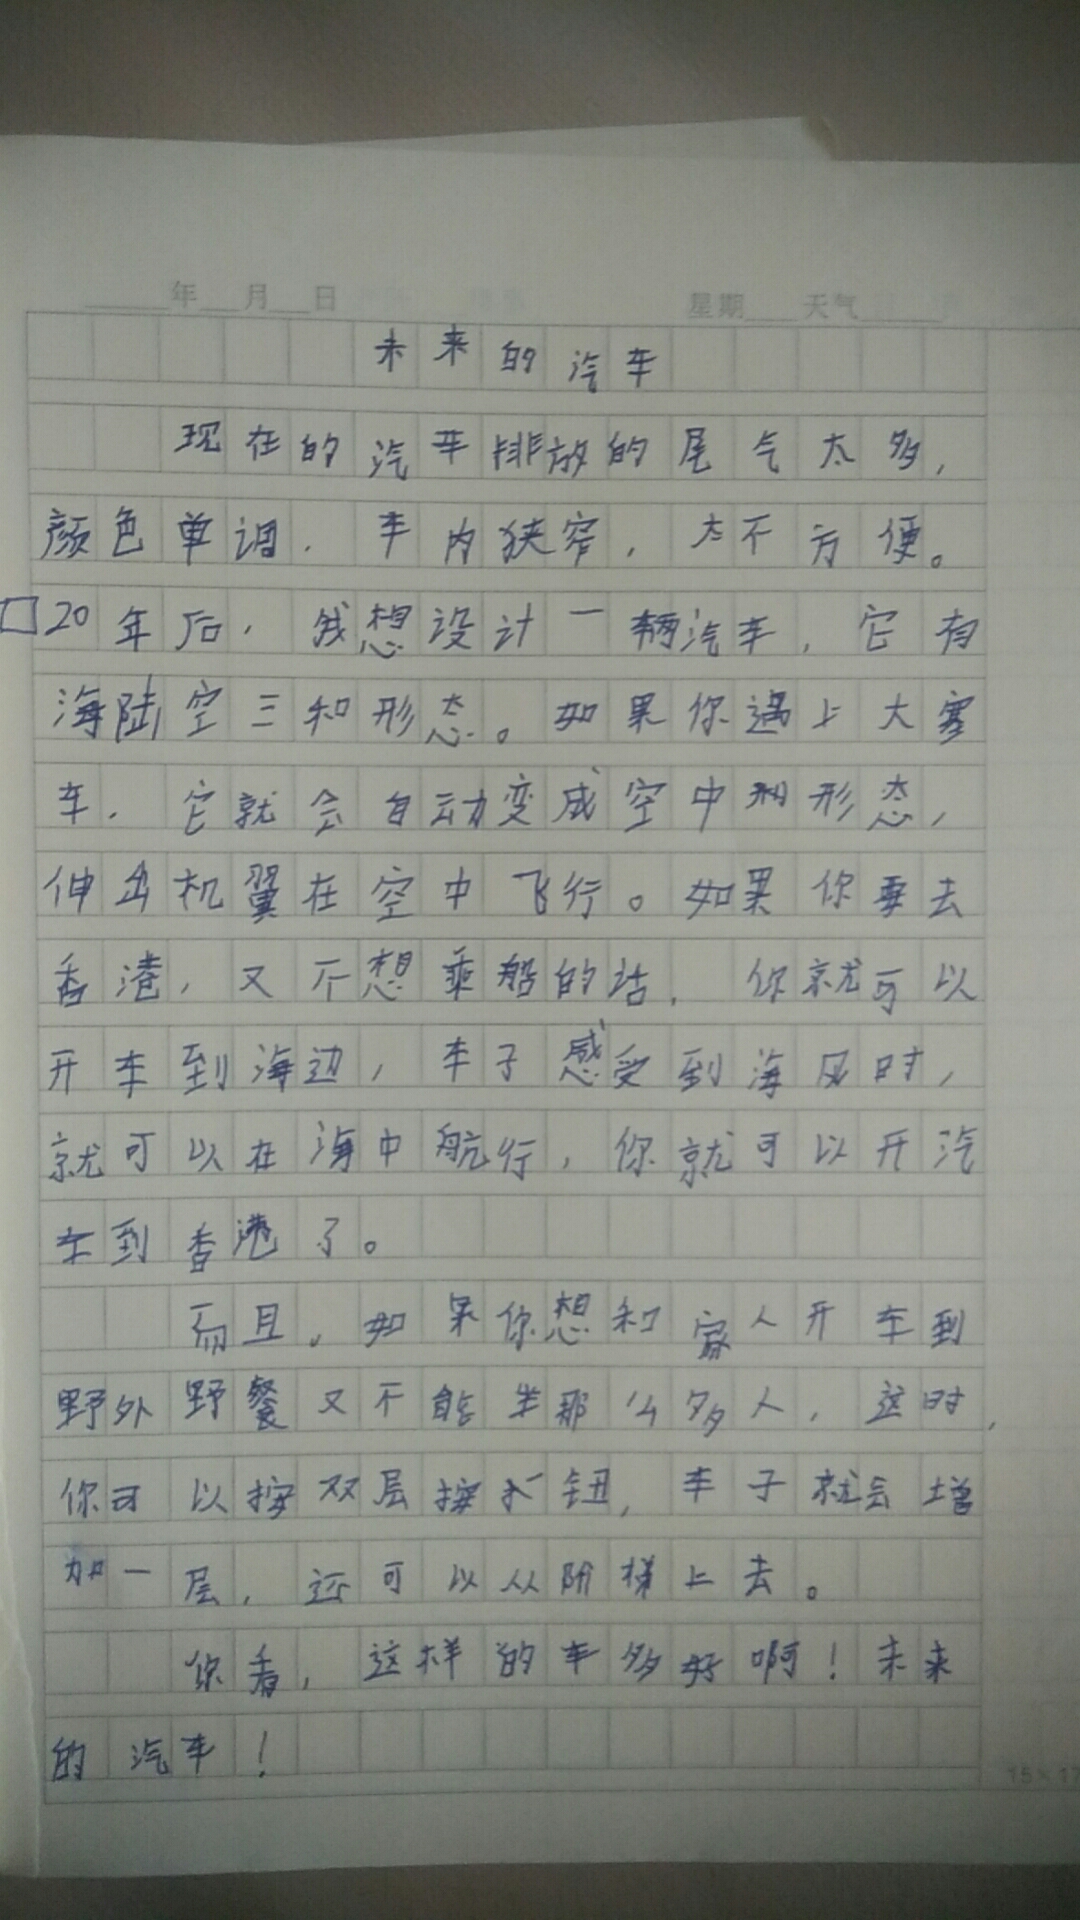 年 月 日 星期 天气
未来的汽车
现在的汽车排放的尾气太多,
颜色单调,车内狭窄,太不方便。
20年后,我想设计一辆汽车,它有
海陆空三种形态。如果你遇上大塞
车,它就会自动变成空中形态,
伸出机翼在空中飞行。如果你要去
香港,又不想乘船的话,你就可以
开车到海边,车子感受到海风时,
就可以在海中航行,你就可以开汽
车到香港了。
而且,如果你想和家人开车到
野外野餐又不能坐那么多人,这时,
你可以按双层按钮,车子就会增
加一层,还可以从阶梯上去。
你看,这样的车多好啊!未来
的汽车!